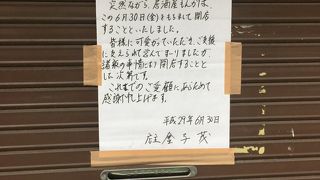 突然ながら、居酒屋もんがは、
この6月30日(金)をもちまして閉店
することといたしました。
皆様に可愛がっていただき、ご支援
に支えられて営んでまいりましたが、
諸般の事情により閉店することと
した次第です。
これまでのご愛顧にあらためて
感謝申し上げます。
平成29年6月30日
店主 金子 茂